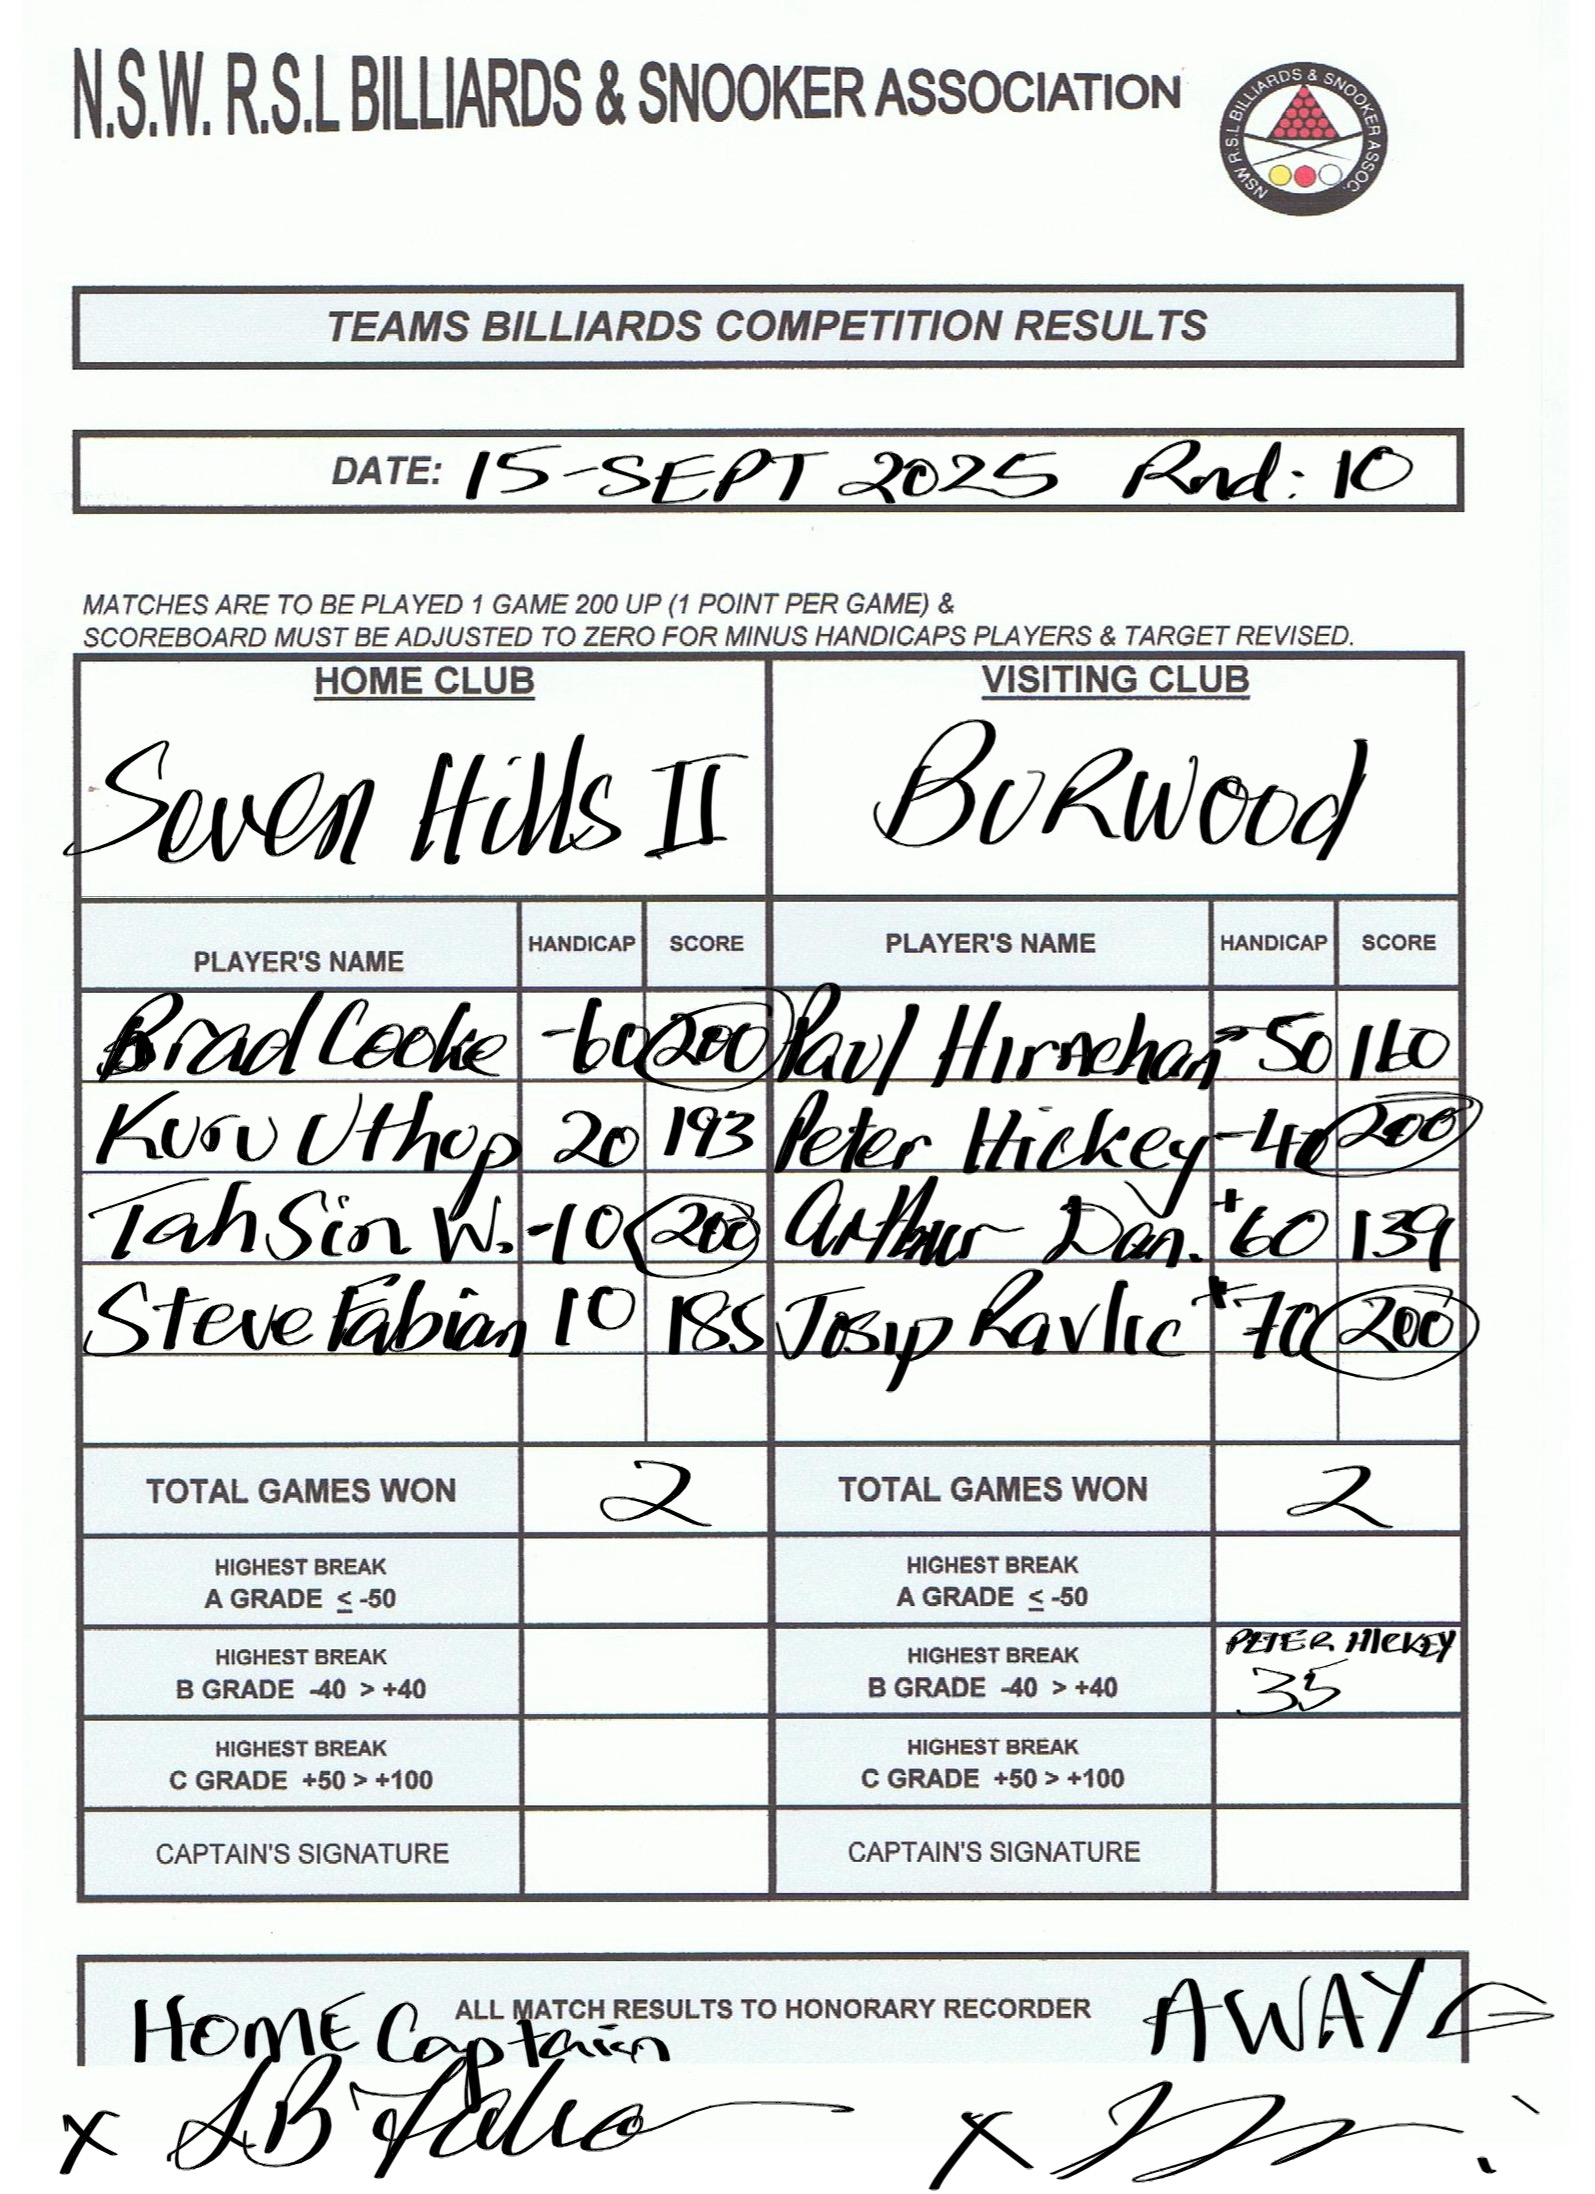 N.S.W. R.S.L BILLIARDS & SNOOKER ASSOCIATION
NSW R.S.L BILLIARDS & SNOOKER ASSOC.
TEAMS BILLIARDS COMPETITION RESULTS
DATE: 15-SEPT 2025 Rnd: 10
MATCHES ARE TO BE PLAYED 1 GAME 200 UP (1 POINT PER GAME) &
SCOREBOARD MUST BE ADJUSTED TO ZERO FOR MINUS HANDICAPS PLAYERS & TARGET REVISED.
HOME CLUB VISITING CLUB
Seven Hills II BURWOOD
PLAYER'S NAME HANDICAP SCORE PLAYER'S NAME HANDICAP SCORE
Brad Cooke -60 200 Paul -50 160
Kuru Uthup 20 193 Peter Hickey -40 200
Tahsin W. -10 200 Arthur Dan. +60 139
Steve Fabian 10 185 Josip Ravlic +70 200
TOTAL GAMES WON 2 TOTAL GAMES WON 2
HIGHEST BREAK HIGHEST BREAK
A GRADE ≤ -50 A GRADE ≤ -50
HIGHEST BREAK HIGHEST BREAK PETER HICKEY
B GRADE -40 > +40 B GRADE -40 > +40 35
HIGHEST BREAK HIGHEST BREAK
C GRADE +50 > +100 C GRADE +50 > +100
CAPTAIN'S SIGNATURE CAPTAIN'S SIGNATURE
ALL MATCH RESULTS TO HONORARY RECORDER
HOME Captain AWAY
X X